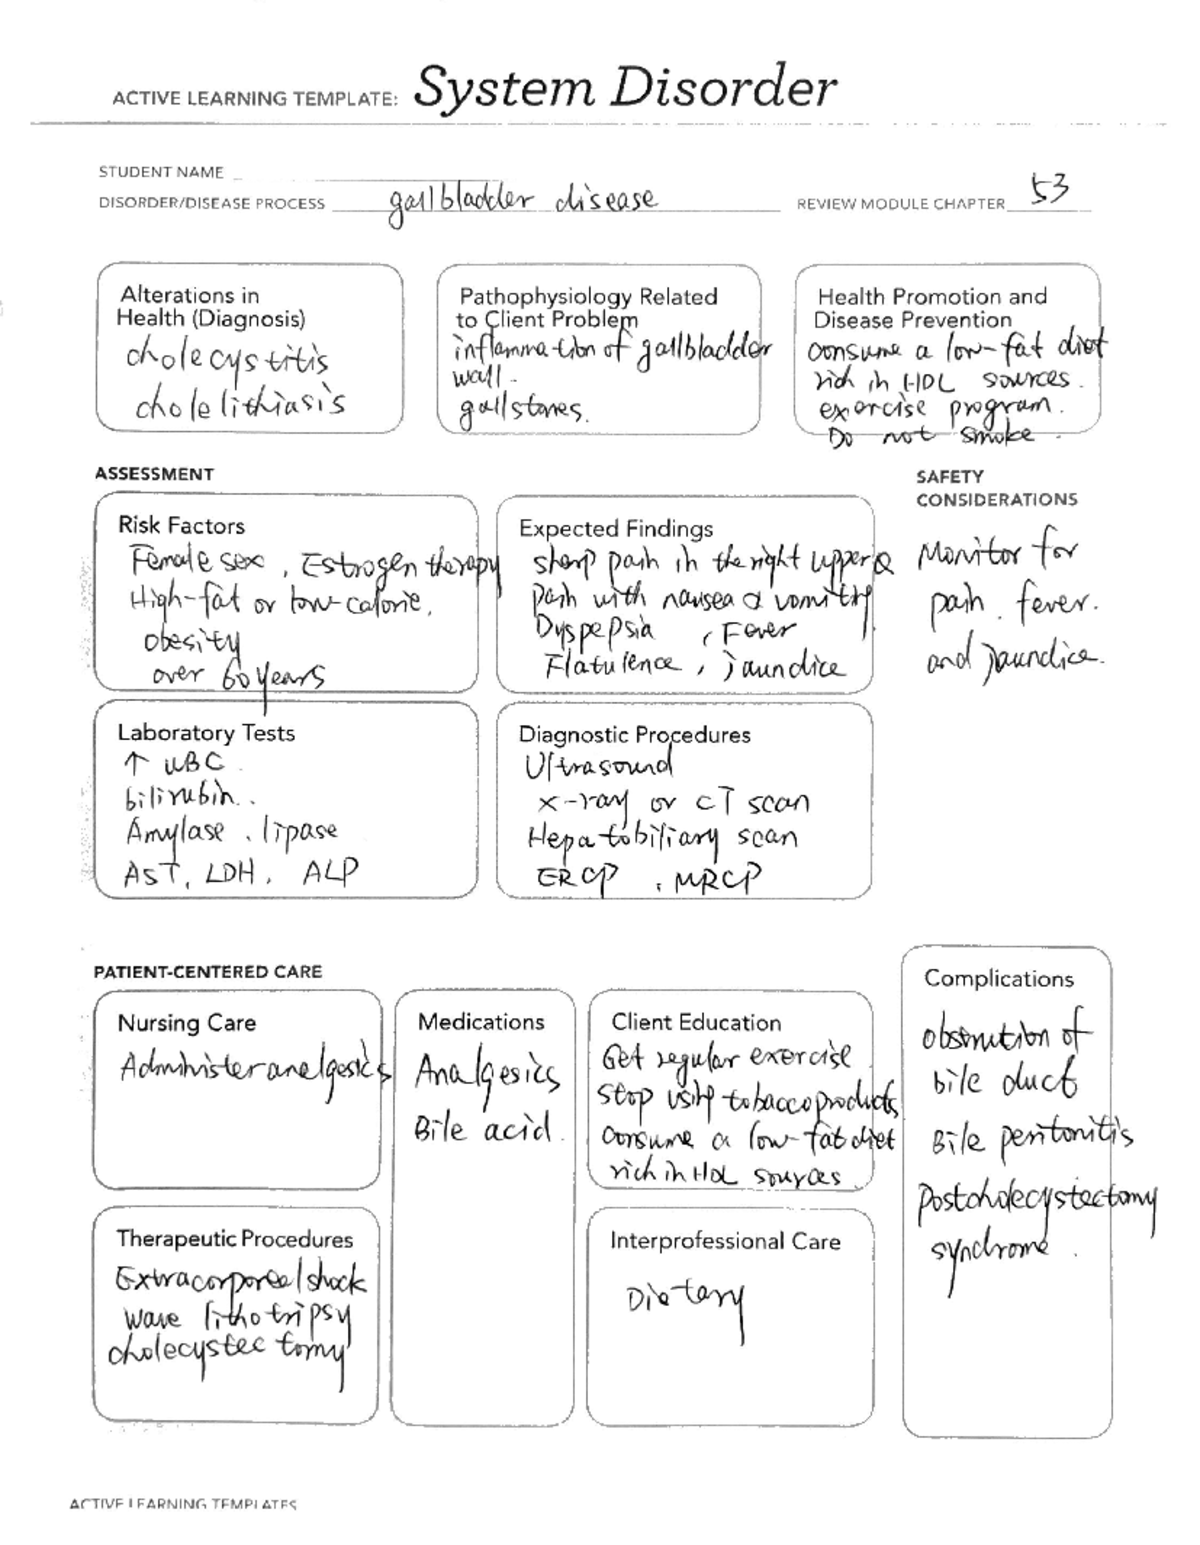 ACTIVE LEARNING TEMPLATE: System Disorder
STUDENT NAME
DISORDER/DISEASE PROCESS gallbladder disease
REVIEW MODULE CHAPTER 53
Alterations in
Health (Diagnosis)
cholecystitis
cholelithiasis
Pathophysiology Related
to Client Problem
inflammation of gallbladder
wall.
gallstones.
Health Promotion and
Disease Prevention
consume a low-fat diet
rich in HDL sources.
exercise program.
Do not smoke.
ASSESSMENT
SAFETY
CONSIDERATIONS
Risk Factors
Female sex, Estrogen therapy
High-fat or low-calorie,
obesity
over 60 years
Expected Findings
sharp pain in the right upper Q
Pain with nausea & vomiting
Dyspepsia, Fever
Flatulence, jaundice
Monitor for
pain, fever.
and jaundice.
Laboratory Tests
↑ WBC
bilirubin.
Amylase, lipase
AST, LDH, ALP
Diagnostic Procedures
Ultrasound
x-ray or CT scan
Hepatobiliary scan
ERCP, MRCP
PATIENT-CENTERED CARE
Nursing Care
Administer analgesics
Medications
Analgesics
Bile acid.
Client Education
Get regular exercise
Stop using tobacco products
consume a low-fat diet
rich in HDL sources.
Complications
obstruction of
bile duct
Bile peritonitis
Postcholecystectomy
syndrome.
Therapeutic Procedures
Extracorporeal shock
wave lithotripsy
cholecystectomy
Interprofessional Care
Dietary
ACTIVE LEARNING TEMPLATES